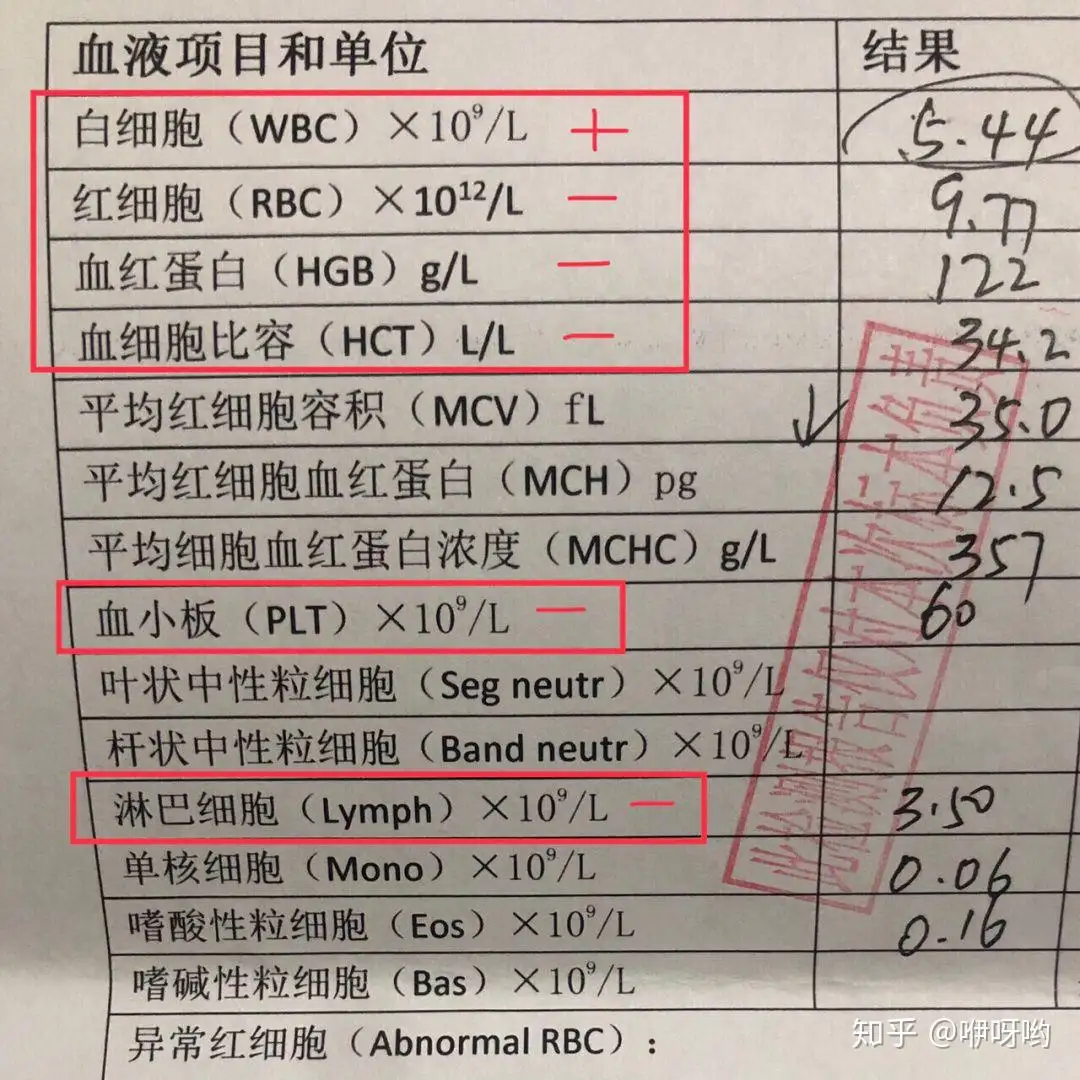 血液项目和单位 结果
白细胞（WBC）×10⁹/L + 5.44
红细胞（RBC）×10¹²/L — 9.77
血红蛋白（HGB）g/L — 122
血细胞比容（HCT）L/L — 34.2
平均红细胞容积（MCV）fL ↓ 35.0
平均红细胞血红蛋白（MCH）pg 12.5
平均细胞血红蛋白浓度（MCHC）g/L 357
血小板（PLT）×10⁹/L — 60
叶状中性粒细胞（Seg neutr）×10⁹/L
杆状中性粒细胞（Band neutr）×10⁹/L
淋巴细胞（Lymph）×10⁹/L — 3.50
单核细胞（Mono）×10⁹/L 0.06
嗜酸性粒细胞（Eos）×10⁹/L 0.16
嗜碱性粒细胞（Bas）×10⁹/L
异常红细胞（Abnormal RBC）：
知乎 @咿呀哟